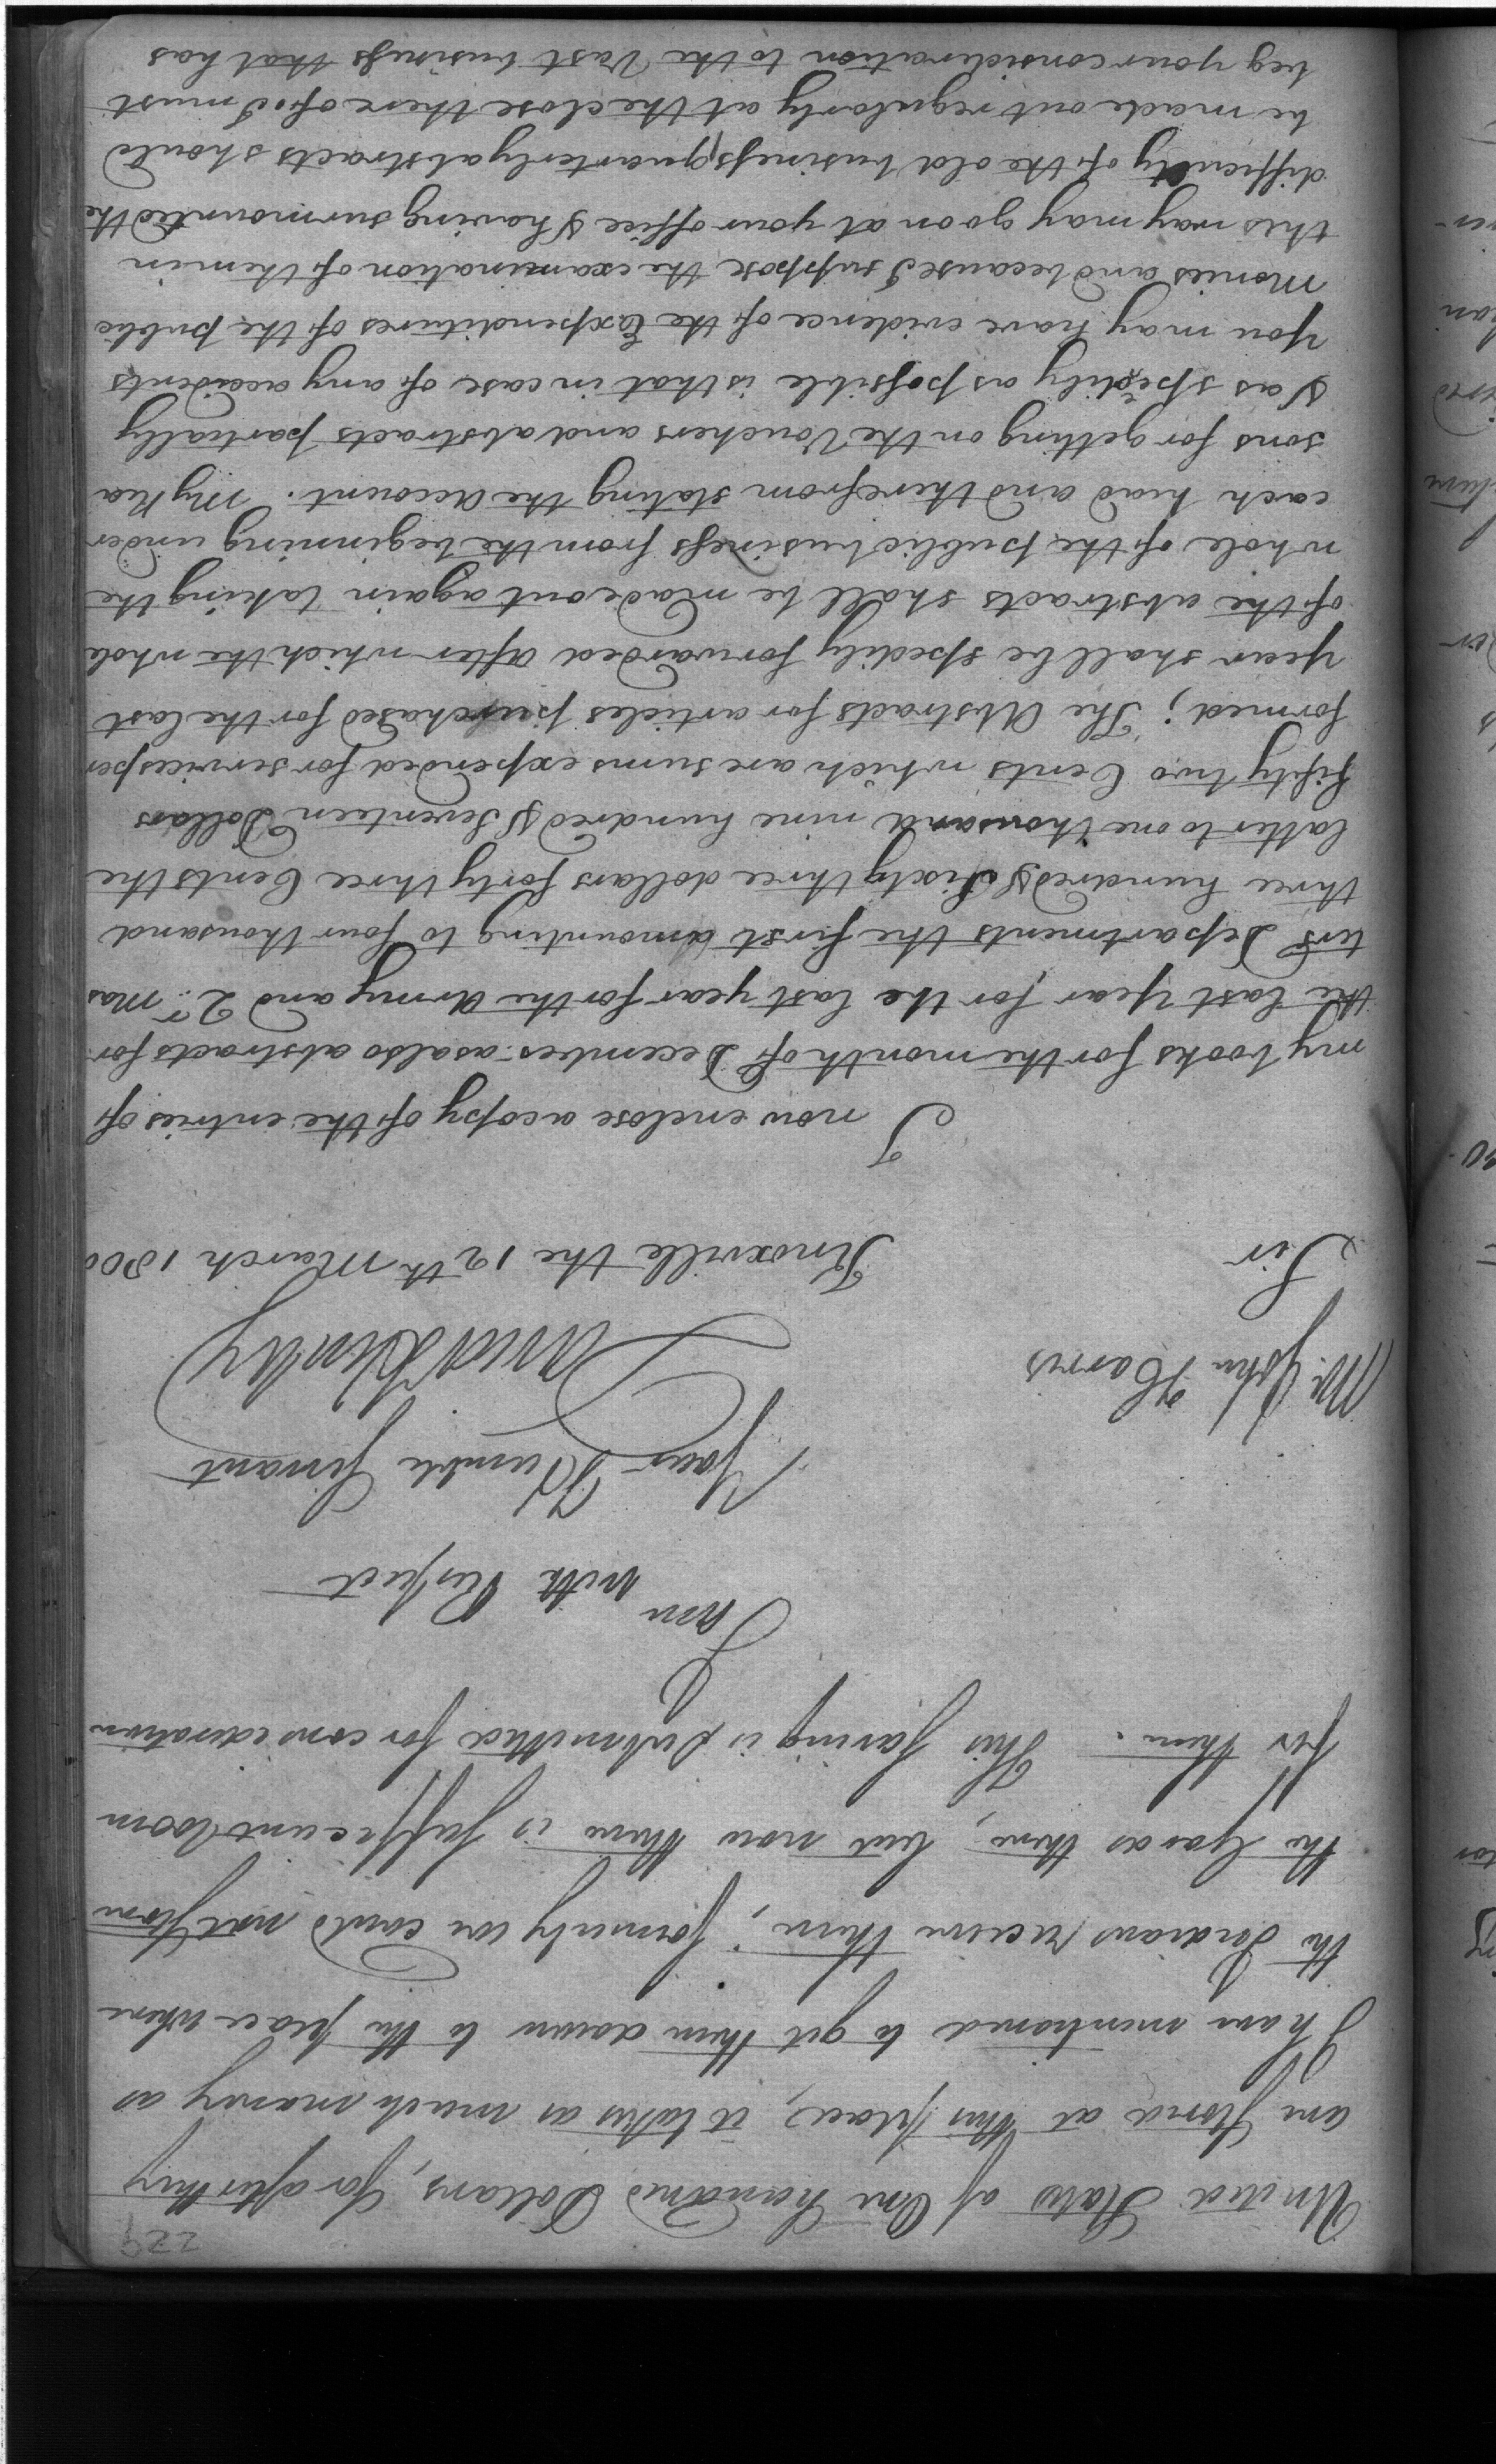 229
United States of One hundred Dollars, for after they
are stored at this place, it takes as much money as
I have mentioned to get them down to the place where
the Indians receive them, formerly we could not store
the Goods there, but now there is sufficient Room
for them. This saving is submitted for consideration
I am
with Respect
Your Humble Servant
Mr. John Harris
Sir
Knoxville the 12th March 1800
I now enclose a copy of the entries of
my books for the month of December as also abstracts for
the last year for the last year for the Army and Qr. Mas
ters Departments the first amounting to four thousand
three hundred & Sixty three dollars forty three Cents the
latter to one thousand nine hundred & Seventeen Dollars
fifty two Cents which are sums expended for services per
formed; The Abstracts for articles purchased for the last
year shall be spedily forwarded after which the whole
of the abstracts shall be made out again taking the
whole of the public business from the beginning under
each head and therefrom stating the account. My Rea
sons for getting on the Vouchers and abstracts partially
& as spedily as possible is that in case of any accidents
you may have evidence of the Expenditures of the public
Monies and because I suppose the examination of them in
this way may go on at your office & having surmounted the
difficulty of the old business quarterly abstracts should
be made out regularly at the close there of. I must
beg your consideration to the Vast business that has